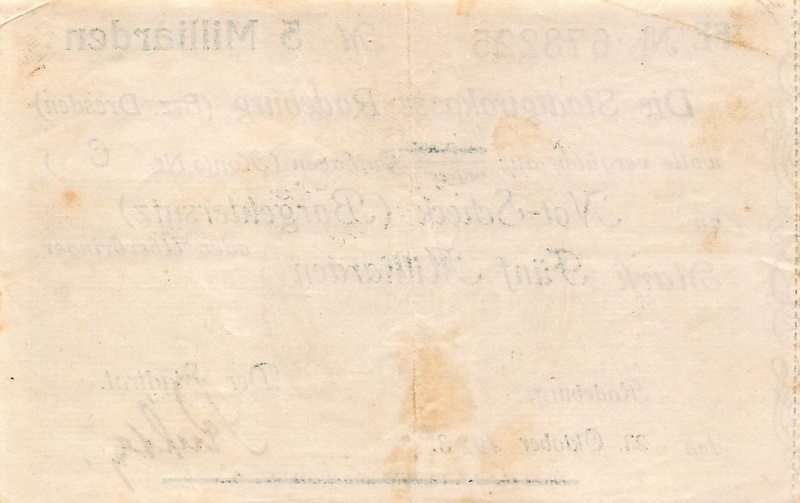 Nr. 678225 M 5 Milliarden
Die Stadtgirokasse Radeburg (Bez. Dresden)
wolle vergüten aus Guthaben (Konto Nr. 6 )
Not-Scheck (Bargeldersatz)
oder Überbringer
Mark Fünf Milliarden
Radeburg, Der Stadtrat.
den 23. Oktober 1923.